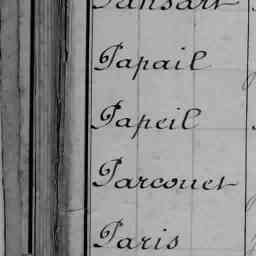 Pansart
Papail
Papeil
Parcouet
Paris